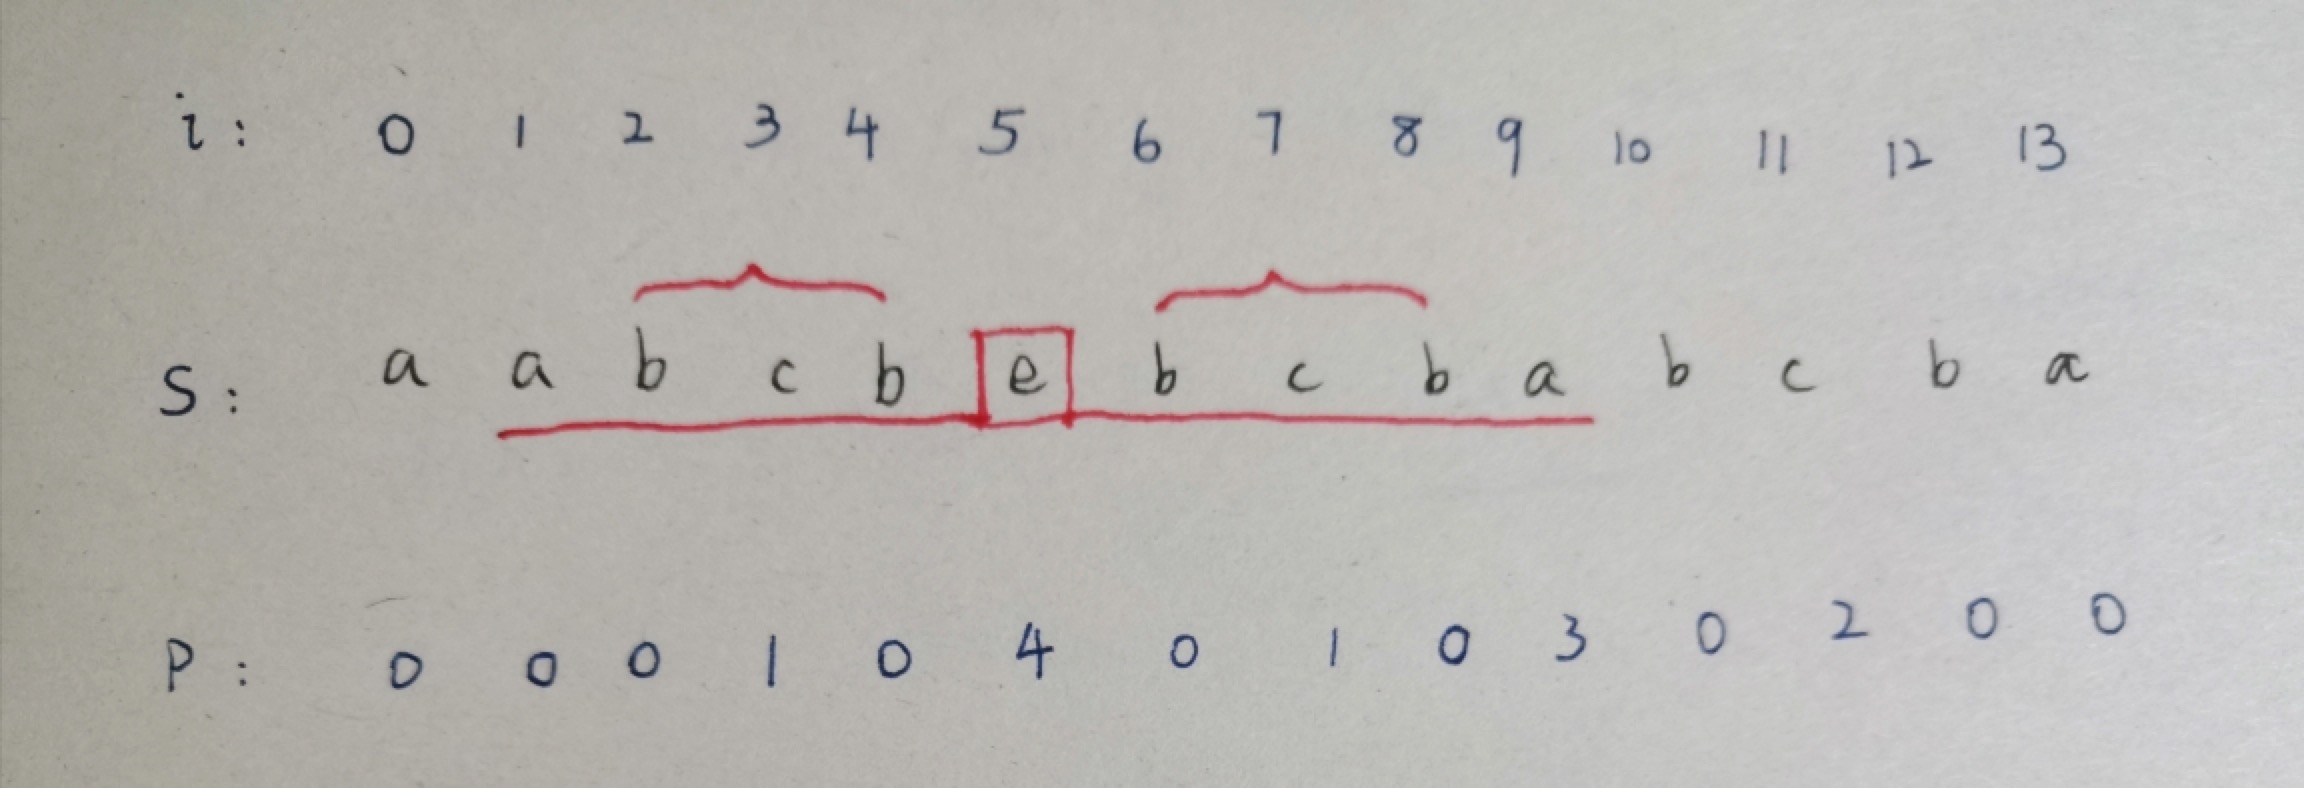 i: 0 1 2 3 4 5 6 7 8 9 10 11 12 13
S: a a b c b e b c b a b c b a
P: 0 0 0 1 0 4 0 1 0 3 0 2 0 0